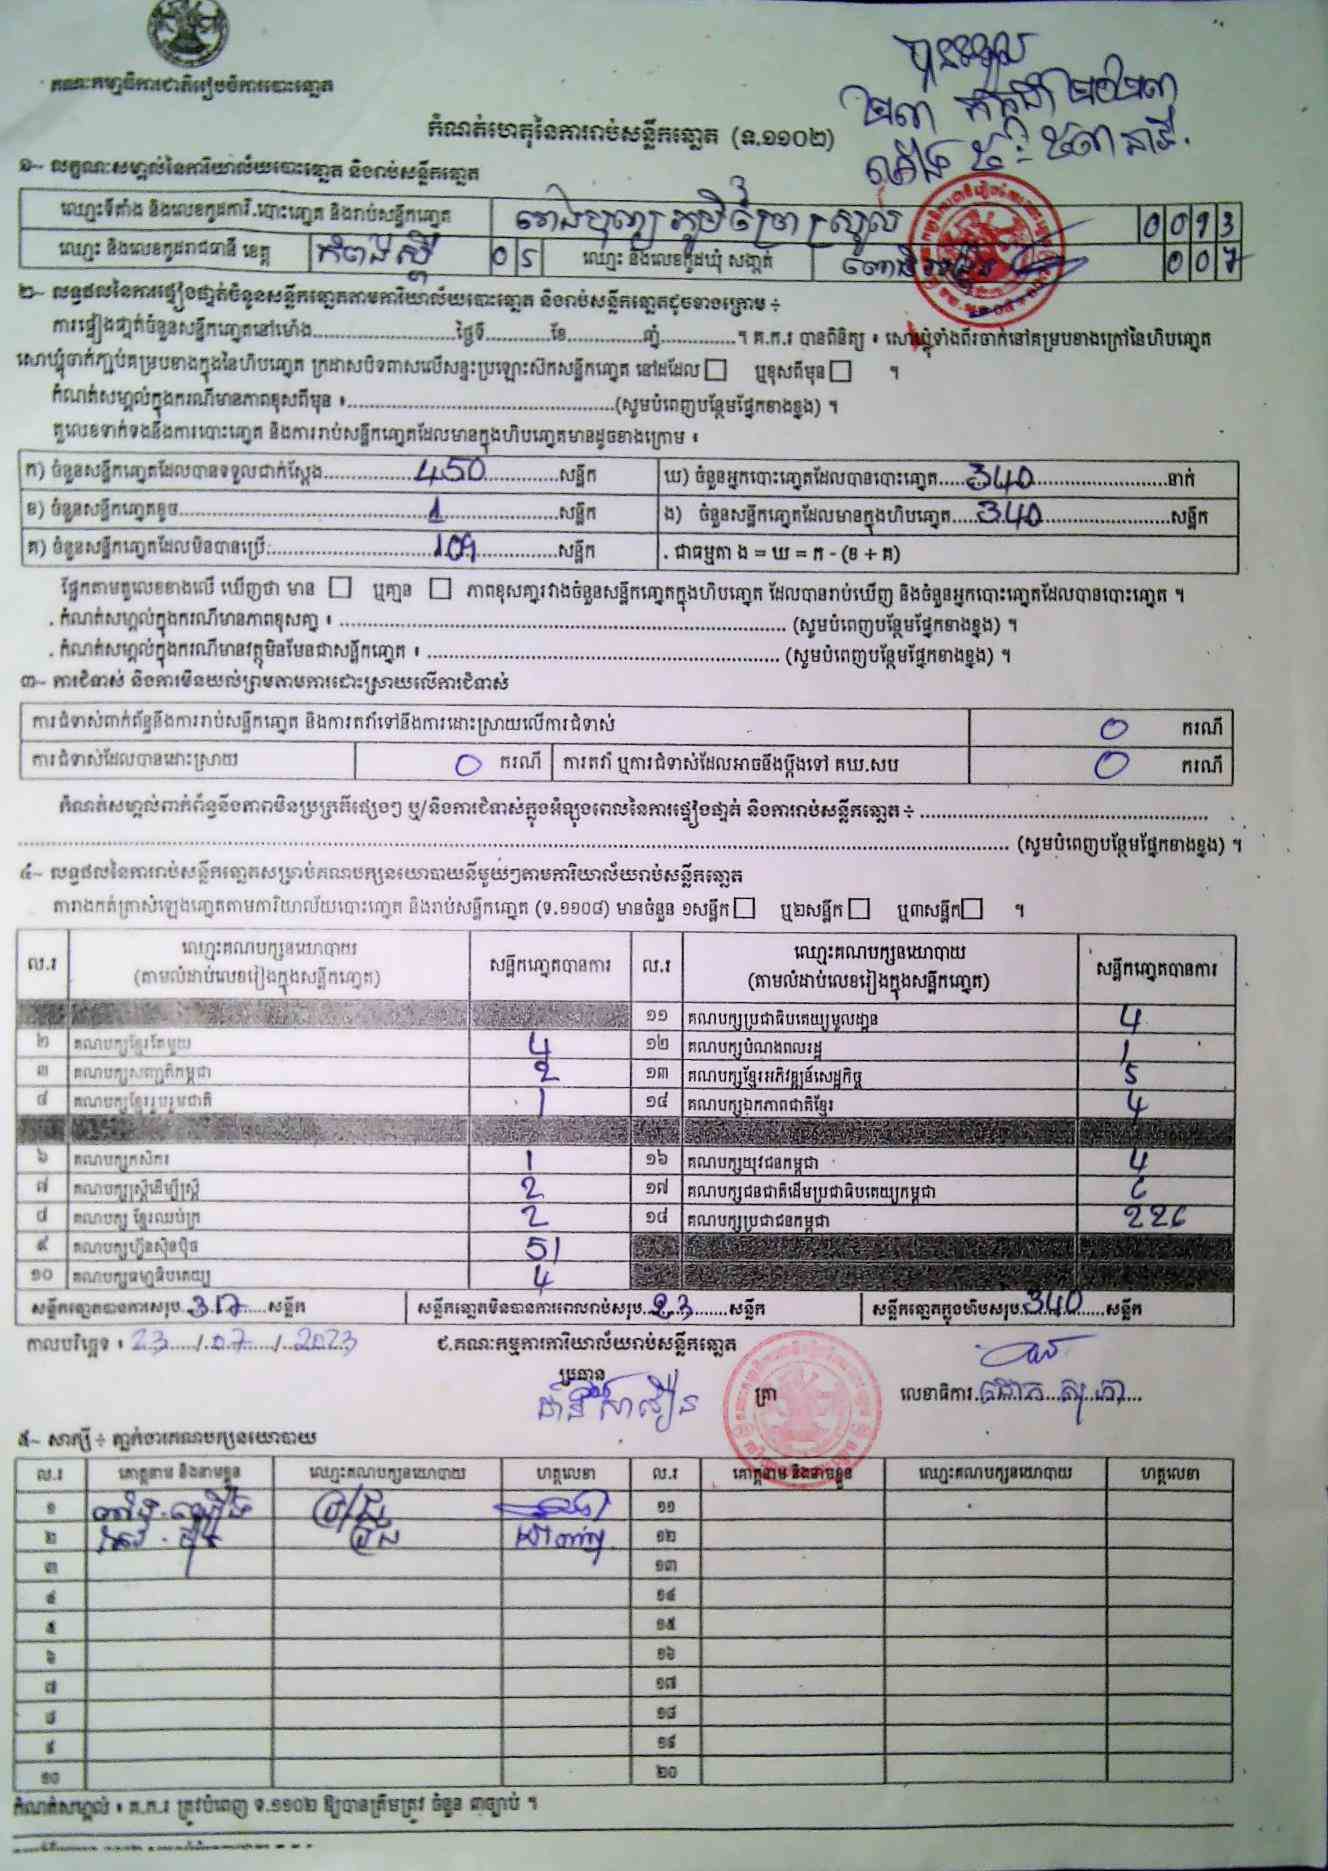 គណៈកម្មាធិការជាតិរៀបចំការបោះឆ្នោត
កំណត់ហេតុនៃការរាប់សន្លឹកឆ្នោត (ទ.១១០២)
១~ លក្ខណៈសម្គាល់នៃការិយាល័យបោះឆ្នោត និងរាប់សន្លឹកឆ្នោត
ឈ្មោះទីតាំង និងលេខកូដការិ.បោះឆ្នោត និងរាប់សន្លឹកឆ្នោត 0093
ឈ្មោះ និងលេខកូដរាជធានី ខេត្ត កំពង់ស្ពឺ 05 ឈ្មោះ និងលេខកូដឃុំ សង្កាត់ 007
២~ លទ្ធផលនៃការផ្ទៀងផ្ទាត់ចំនួនសន្លឹកឆ្នោតតាមការិយាល័យបោះឆ្នោត និងរាប់សន្លឹកឆ្នោតដូចខាងក្រោម ÷
ការផ្ទៀងផ្ទាត់ចំនួនសន្លឹកឆ្នោតនៅម៉ោង..........ថ្ងៃទី..........ខែ..........ឆ្នាំ..........។ គ.ក.រ បានពិនិត្យ ៖ សោឃ្លុំទាំងពីរចាក់នៅគម្របខាងក្រៅនៃហិបឆ្នោត
សោឃ្លុំចាក់ភ្ជាប់គម្របខាងក្នុងនៃហិបឆ្នោត ក្រដាសបិទពាសលើសន្ទះប្រឡោះស៊កសន្លឹកឆ្នោត នៅដដែល □ ឬខុសពីមុន □ ។
កំណត់សម្គាល់ក្នុងករណីមានភាពខុសពីមុន ៖..........(សូមបំពេញបន្ថែមផ្នែកខាងខ្នង) ។
តួលេខទាក់ទងនឹងការបោះឆ្នោត និងការរាប់សន្លឹកឆ្នោតដែលមានក្នុងហិបឆ្នោតមានដូចខាងក្រោម ៖
ក) ចំនួនសន្លឹកឆ្នោតដែលបានទទួលជាក់ស្តែង..........450..........សន្លឹក ឃ) ចំនួនអ្នកបោះឆ្នោតដែលបានបោះឆ្នោត.....340..........នាក់
ខ) ចំនួនសន្លឹកឆ្នោតខូច..........1..........សន្លឹក ង) ចំនួនសន្លឹកឆ្នោតដែលមានក្នុងហិបឆ្នោត.....340..........សន្លឹក
គ) ចំនួនសន្លឹកឆ្នោតដែលមិនបានប្រើ..........109..........សន្លឹក . ជាធម្មតា ង = ឃ = ក - (ខ + គ)
ផ្អែកតាមតួលេខខាងលើ ឃើញថា មាន □ ឬគ្មាន □ ភាពខុសគ្នារវាងចំនួនសន្លឹកឆ្នោតក្នុងហិបឆ្នោត ដែលបានរាប់ឃើញ និងចំនួនអ្នកបោះឆ្នោតដែលបានបោះឆ្នោត ។
. កំណត់សម្គាល់ក្នុងករណីមានភាពខុសគ្នា ៖ .......... (សូមបំពេញបន្ថែមផ្នែកខាងខ្នង) ។
. កំណត់សម្គាល់ក្នុងករណីមានវត្ថុមិនមែនជាសន្លឹកឆ្នោត ៖ .......... (សូមបំពេញបន្ថែមផ្នែកខាងខ្នង) ។
៣~ ការជំទាស់ និងការមិនយល់ព្រមតាមការដោះស្រាយលើការជំទាស់
ការជំទាស់ពាក់ព័ន្ធនឹងការរាប់សន្លឹកឆ្នោត និងការតវ៉ាទៅនឹងការដោះស្រាយលើការជំទាស់ 0 ករណី
ការជំទាស់ដែលបានដោះស្រាយ 0 ករណី ការតវ៉ា ឬការជំទាស់ដែលអាចនឹងប្តឹងទៅ គឃ.សប 0 ករណី
កំណត់សម្គាល់ពាក់ព័ន្ធនឹងភាពមិនប្រក្រតីផ្សេងៗ ឬ/និងការជំទាស់ក្នុងអំឡុងពេលនៃការផ្ទៀងផ្ទាត់ និងការរាប់សន្លឹកឆ្នោត ÷ ..........
.......... (សូមបំពេញបន្ថែមផ្នែកខាងខ្នង) ។
៤~ លទ្ធផលនៃការរាប់សន្លឹកឆ្នោតសម្រាប់គណបក្សនយោបាយនីមួយៗតាមការិយាល័យរាប់សន្លឹកឆ្នោត
តារាងកត់ត្រាសំឡេងឆ្នោតតាមការិយាល័យបោះឆ្នោត និងរាប់សន្លឹកឆ្នោត (ទ.១១០៨) មានចំនួន ១សន្លឹក □ ឬ២សន្លឹក □ ឬ៣សន្លឹក □ ។
ល.រ ឈ្មោះគណបក្សនយោបាយ (តាមលំដាប់លេខរៀងក្នុងសន្លឹកឆ្នោត) សន្លឹកឆ្នោតបានការ ល.រ ឈ្មោះគណបក្សនយោបាយ (តាមលំដាប់លេខរៀងក្នុងសន្លឹកឆ្នោត) សន្លឹកឆ្នោតបានការ
១១ គណបក្សប្រជាធិបតេយ្យមូលដ្ឋាន 4
២ គណបក្សខ្មែរតែមួយ 4 ១២ គណបក្សបំណងពលរដ្ឋ 1
៣ គណបក្សសញ្ជាតិកម្ពុជា 2 ១៣ គណបក្សខ្មែរអភិវឌ្ឍន៍សេដ្ឋកិច្ច 5
៤ គណបក្សខ្មែររួបរួមជាតិ 1 ១៤ គណបក្សឯកភាពជាតិខ្មែរ 4
៦ គណបក្សកសិករ 1 ១៦ គណបក្សយុវជនកម្ពុជា 4
៧ គណបក្សស្ត្រីដើម្បីស្ត្រី 2 ១៧ គណបក្សជនជាតិដើមប្រជាធិបតេយ្យកម្ពុជា 6
៨ គណបក្ស ខ្មែរឈប់ក្រ 2 ១៨ គណបក្សប្រជាជនកម្ពុជា 226
៩ គណបក្សហ៊្វុនស៊ិនប៉ិច 51
១០ គណបក្សធម្មាធិបតេយ្យ 4
សន្លឹកឆ្នោតបានការសរុប..317.....សន្លឹក សន្លឹកឆ្នោតមិនបានការពេលរាប់សរុប..23.......សន្លឹក សន្លឹកឆ្នោតក្នុងហិបសរុប.340.....សន្លឹក
កាលបរិច្ឆេទ ៖ 23...../.07...../..2023 ជ.គណៈកម្មការការិយាល័យរាប់សន្លឹកឆ្នោត
ប្រធាន ត្រា លេខាធិការ
៥~ សាក្សី ÷ ភ្នាក់ងារគណបក្សនយោបាយ
ល.រ គោត្តនាម និងនាមខ្លួន ឈ្មោះគណបក្សនយោបាយ ហត្ថលេខា ល.រ គោត្តនាម និងនាមខ្លួន ឈ្មោះគណបក្សនយោបាយ ហត្ថលេខា
១ ១១
២ ១២
៣ ១៣
៤ ១៤
៥ ១៥
៦ ១៦
៧ ១៧
៨ ១៨
៩ ១៩
១០ ២០
កំណត់សម្គាល់ ៖ គ.ក.រ ត្រូវបំពេញ ទ.១១០២ ឱ្យបានត្រឹមត្រូវ ចំនួន ៣ច្បាប់ ។